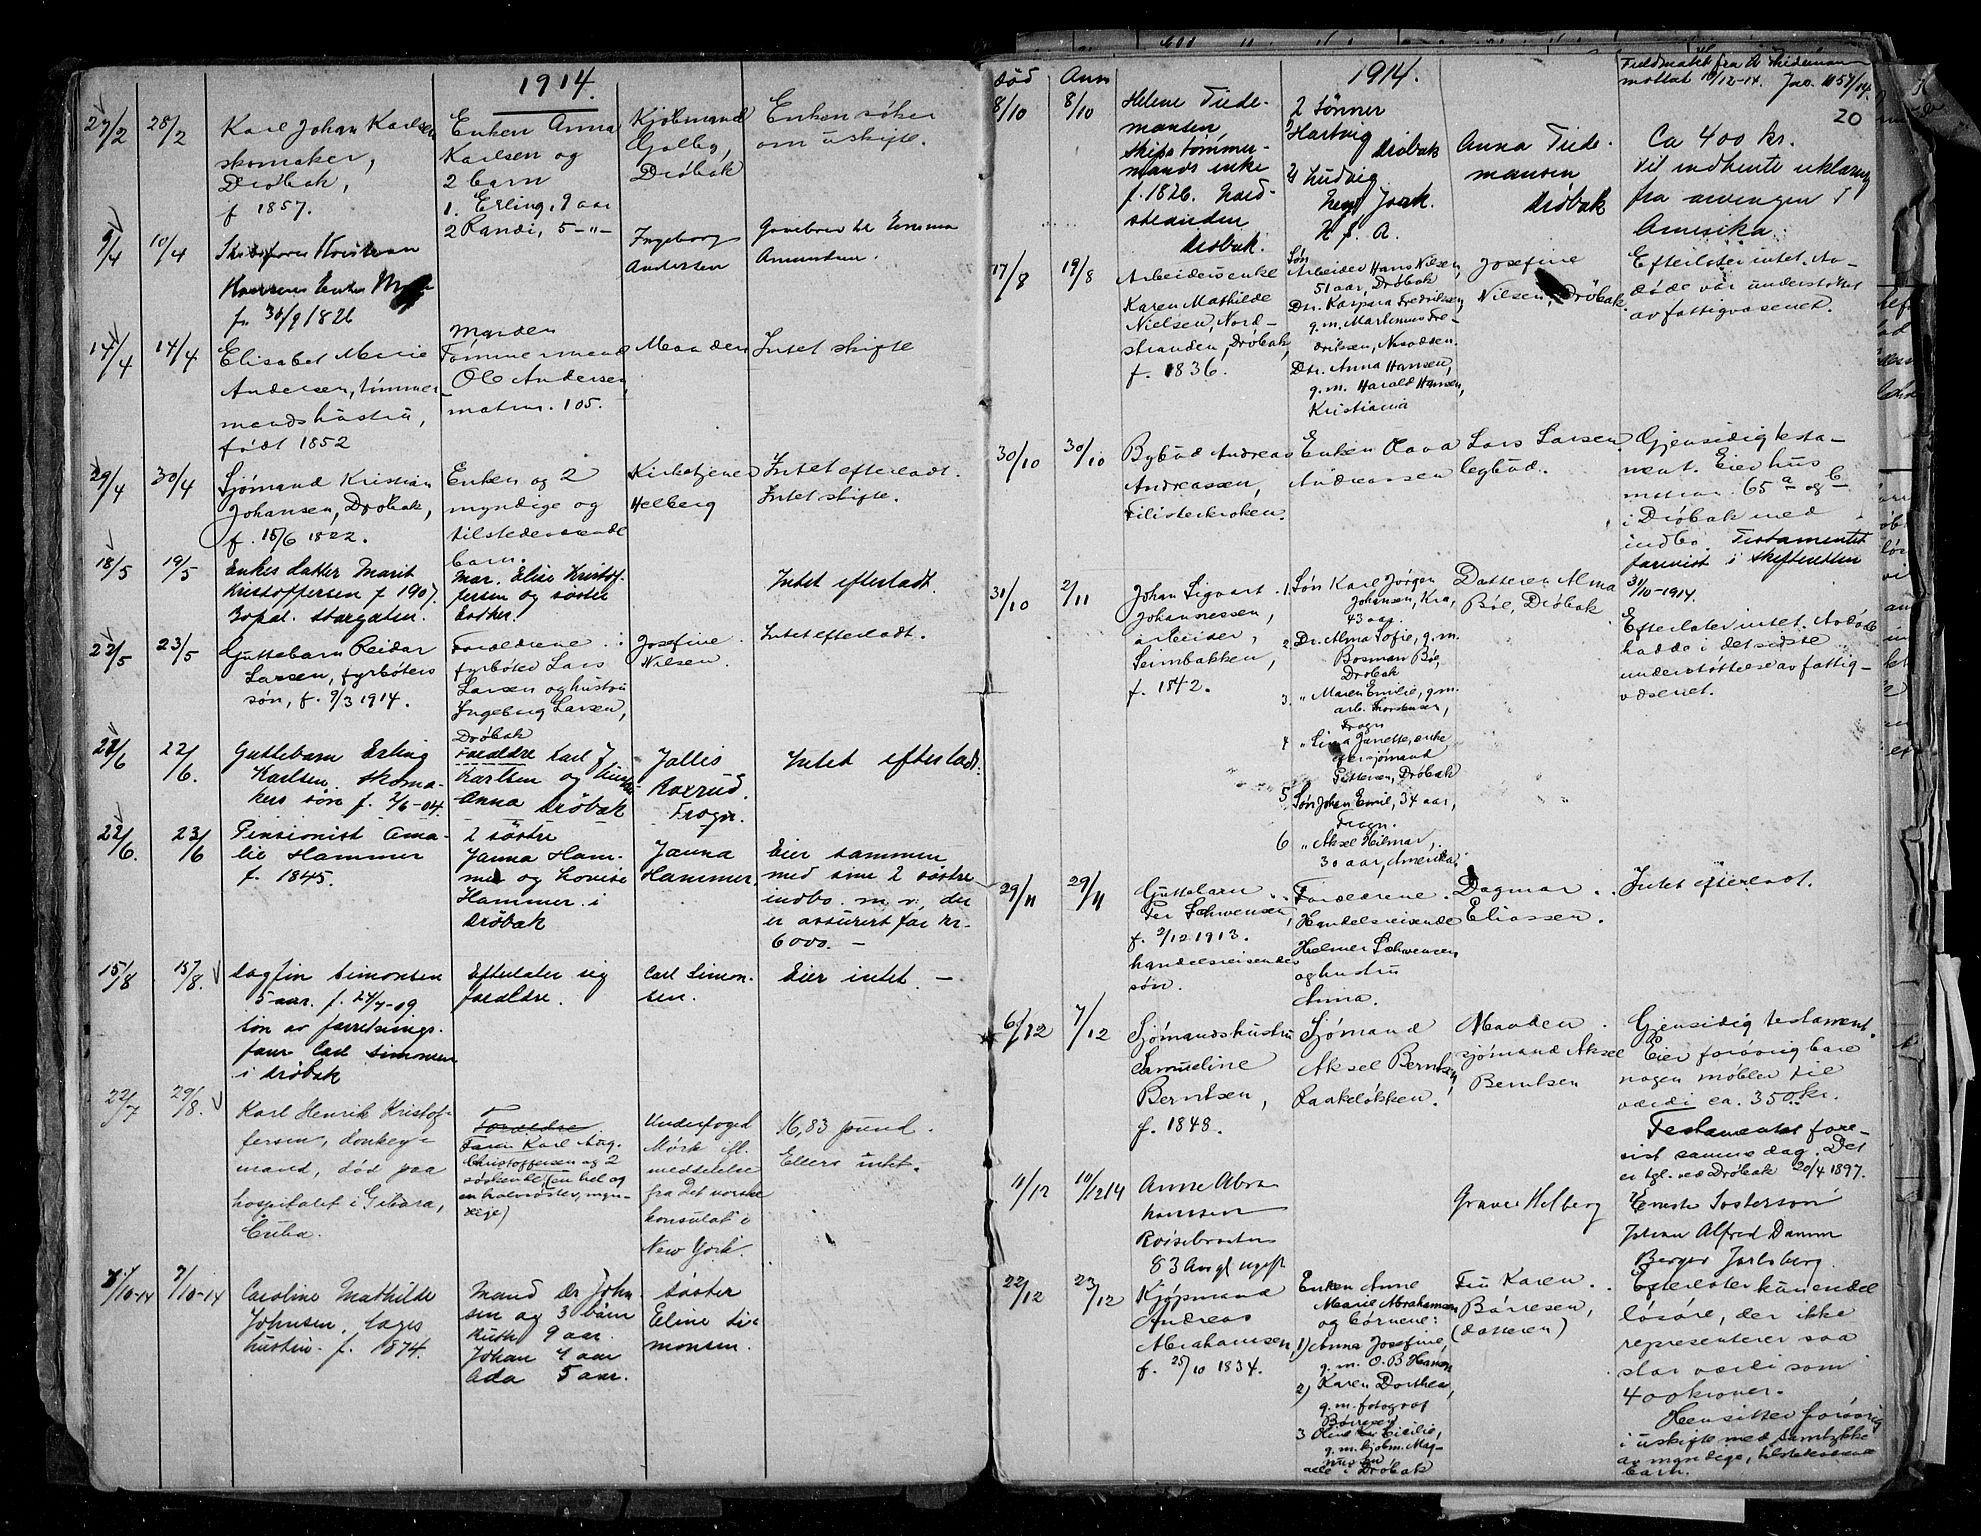 1914.
27/2
28/2
Karl Johan Karlsen
skomaker,
Drøbak,
f 1857.
Enken Anna
Karlsen og
2 barn
1. Erling, 9 aar
2 Randi, 5 -"-
Kjøbmand
Golby,
Drøbak
Enken søker
om uskifte.
9/4
10/4
Enke
f. 31/9 1826
Ingeborg
Andersen
Gavebrev til Emma
Amundsen.
14/4
14/4
Elisabet Marie
Andersen, tømmer
mandshustru,
født 1852
Manden
Tømmermand
Ole Andersen
matrn. 105.
Manden
Intet skifte
29/4
30/4
Sjømand Kristian
Johansen, Drøbak,
f. 15/6 1822.
Enken og 2
myndige og
tilstedeværende
barn.
Kirketjener
Helberg
Intet efterladt.
Intet skifte.
18/5
19/5
Enkes datter Marit
Kristoffersen f 1907.
Bopæl. Storgaten.
Mor. Elise Kristof-
fersen og søster
Esther.
Intet efterladt.
22/5
23/5
Guttebarn Reidar
Larsen, fyrbøters
søn, f. 9/3 1914.
Forældrene
fyrbøter Lars
Larsen og hustru
Ingeborg Larsen,
Drøbak
Josefine
Nilsen.
Intet efterladt.
21/6
22/6.
Guttebarn Erling
Karlsen. Skoma-
kers søn f. 2/6-04.
Forældre Karl J
Karlsen og hustru
Anna Drøbak
Jallis
Roxrud.
Frogn.
Intet efterladt.
22/6.
23/6
Pensionist Ama-
lie Hammer
f. 1845.
2 søstre
Janna Ham-
mer og Lovise
Hammer i
Drøbak
Janna
Hammer,
Eier sammen
med sine 2 søstre
indbo m. v., der
er assurert for kr.
6000. -
15/8
15/8.
Dagfin Simonsen
5 aar. f. 24/7-09
søn av forretnings-
fører Carl Simonsen
i Drøbak
Efterlater sig
forældre.
Carl Simon-
sen.
Eier intet. -
22/7
29/8.
Karl Henrik Kristof-
fersen, donkey-
mand, død paa
hospitalet i Gibara,
Cuba.
Forældre
Faren Karl Aug.
Christoffersen og 2
søskende, (en hel og
en halvsøster, myn-
dige)
Underfoged
Mørk ifl.
meddelelse
fra Det norske
konsulat i
New York.
16,83 pund.
Ellers intet.
7/10-14
7/10-14
Caroline Mathilde
Johnsen, Læges
hustru. f. 1874.
Mand Dr. John
sen og 3 børn
Ruth 9 aar.
Johan 4 aar
Ada 5 aar.
Søster
Eline Si-
monsen.
død
Anm
1914.
mottat 10/12-14. Jno. 1157/14.
20
8/10
8/10
Helene Tiede-
mansen
skipstømmer-
mands enke
f. 1826. Nord-
stranden
Drøbak.
2 sønner
1) Hartvig
Drøbak
2) Ludvig
New York.
U. S. A.
Anna Tiede-
mansen
Drøbak
Ca 400 kr.
vil indhente erklæring
fra arvingen i
Amerika.
17/8
19/8
Arbeidersenke
Karen Mathilde
Nielsen, Nord-
stranden, Drøbak,
f. 1836.
Søn
Arbeider Hans Nilsen,
51 aar, Drøbak
Dtr. Kaspara Fredriksen,
g.m. Martinius Fre-
driksen, Nesodden.
Dtr. Anna Hansen,
g.m. Harald Hansen,
Kristiania
Josefine
Nilsen, Drøbak
Efterlater intet. Av-
døde var understøttet
av fattigvæsenet.
30/10
30/10
Bybud Andreas
Andreassen,
Filisterkroken.
Enken Olava
Andreassen
Lars Larsen
bybud.
Gjensidig testa-
ment. Eier hus
matrn. 65 a og b
i Drøbak med
indbo. Testamentet
forevist i Skifteretten
31/10-1914.
31/10
2/11
Johan Sigvart
Johannessen,
arbeider,
Seimbakken,
f. 1842.
1. Søn Karl Jørgen
Johansen, Kra,
43 aar.
2. Dr. Alma Sofie, g.m.
Bosman Bøe,
Drøbak
3. " Maren Emilie, g.m.
arb. Thorstensen,
Frogn
4 " Lina Janette, enke
efter sjømand
Pettersen, Drøbak
5 Søn Johan Emil, 34 aar,
Frogn.
6 " Aksel Hilmar,
30 aar, Amerika.
Datteren Alma
Bøe, Drøbak
Efterlater intet. Avdøde
hadde i det sidste
understøttelse av fattig-
væsenet.
29/11
29/11
Guttebarn
Per Schwensen,
f. 2/12 1913.
handelsreisendes
søn.
Forældrene
Handelsreisende
Helmer Schwensen
og hustru
Anna.
Dagmar
Eliassen.
Intet efterladt.
6/12
7/12
Sjømandshustru
Samueline
Berntsen,
f. 1848.
Sjømand
Aksel Berntsen,
Raakeløkken.
Manden
sjømand Aksel
Berntsen
Gjensidig testament.
Eier forøvrig bare
nogen møbler til
værdi ca. 350 kr.
Testamentet fore-
vist samme dag. Det
er tgl. ved Drøbak 20/4 1897.
11/12
10/12 14
Anne Abra
hamsen
83 Aar gl ugift
Graver Helberg
Eneste Søstersøn
Johan Alfred Damm
Berger Jarlsberg.
22/12
23/12
Kjøpmand
Andreas
Abrahamsen,
f. 25/10 1834.
Enken Anne
Marie Abrahamsen
og børnene:
1) Anna Josefine,
g.m. O. B. Hansen
2) Karen Dorthea,
g.m. fotograf
Børresen
3 Oline Cicilie,
g.m. kjøbm. Mag-
nussen
alle i Drøbak
Fru Karen
Børresen,
(datteren)
Efterlater kun endel
løsøre, der ikke
representerer saa
stor værdi som
400 kroner.
Hensitter forøvrig
i uskifte med samtykke
av myndige, tilstedeværende
barn.